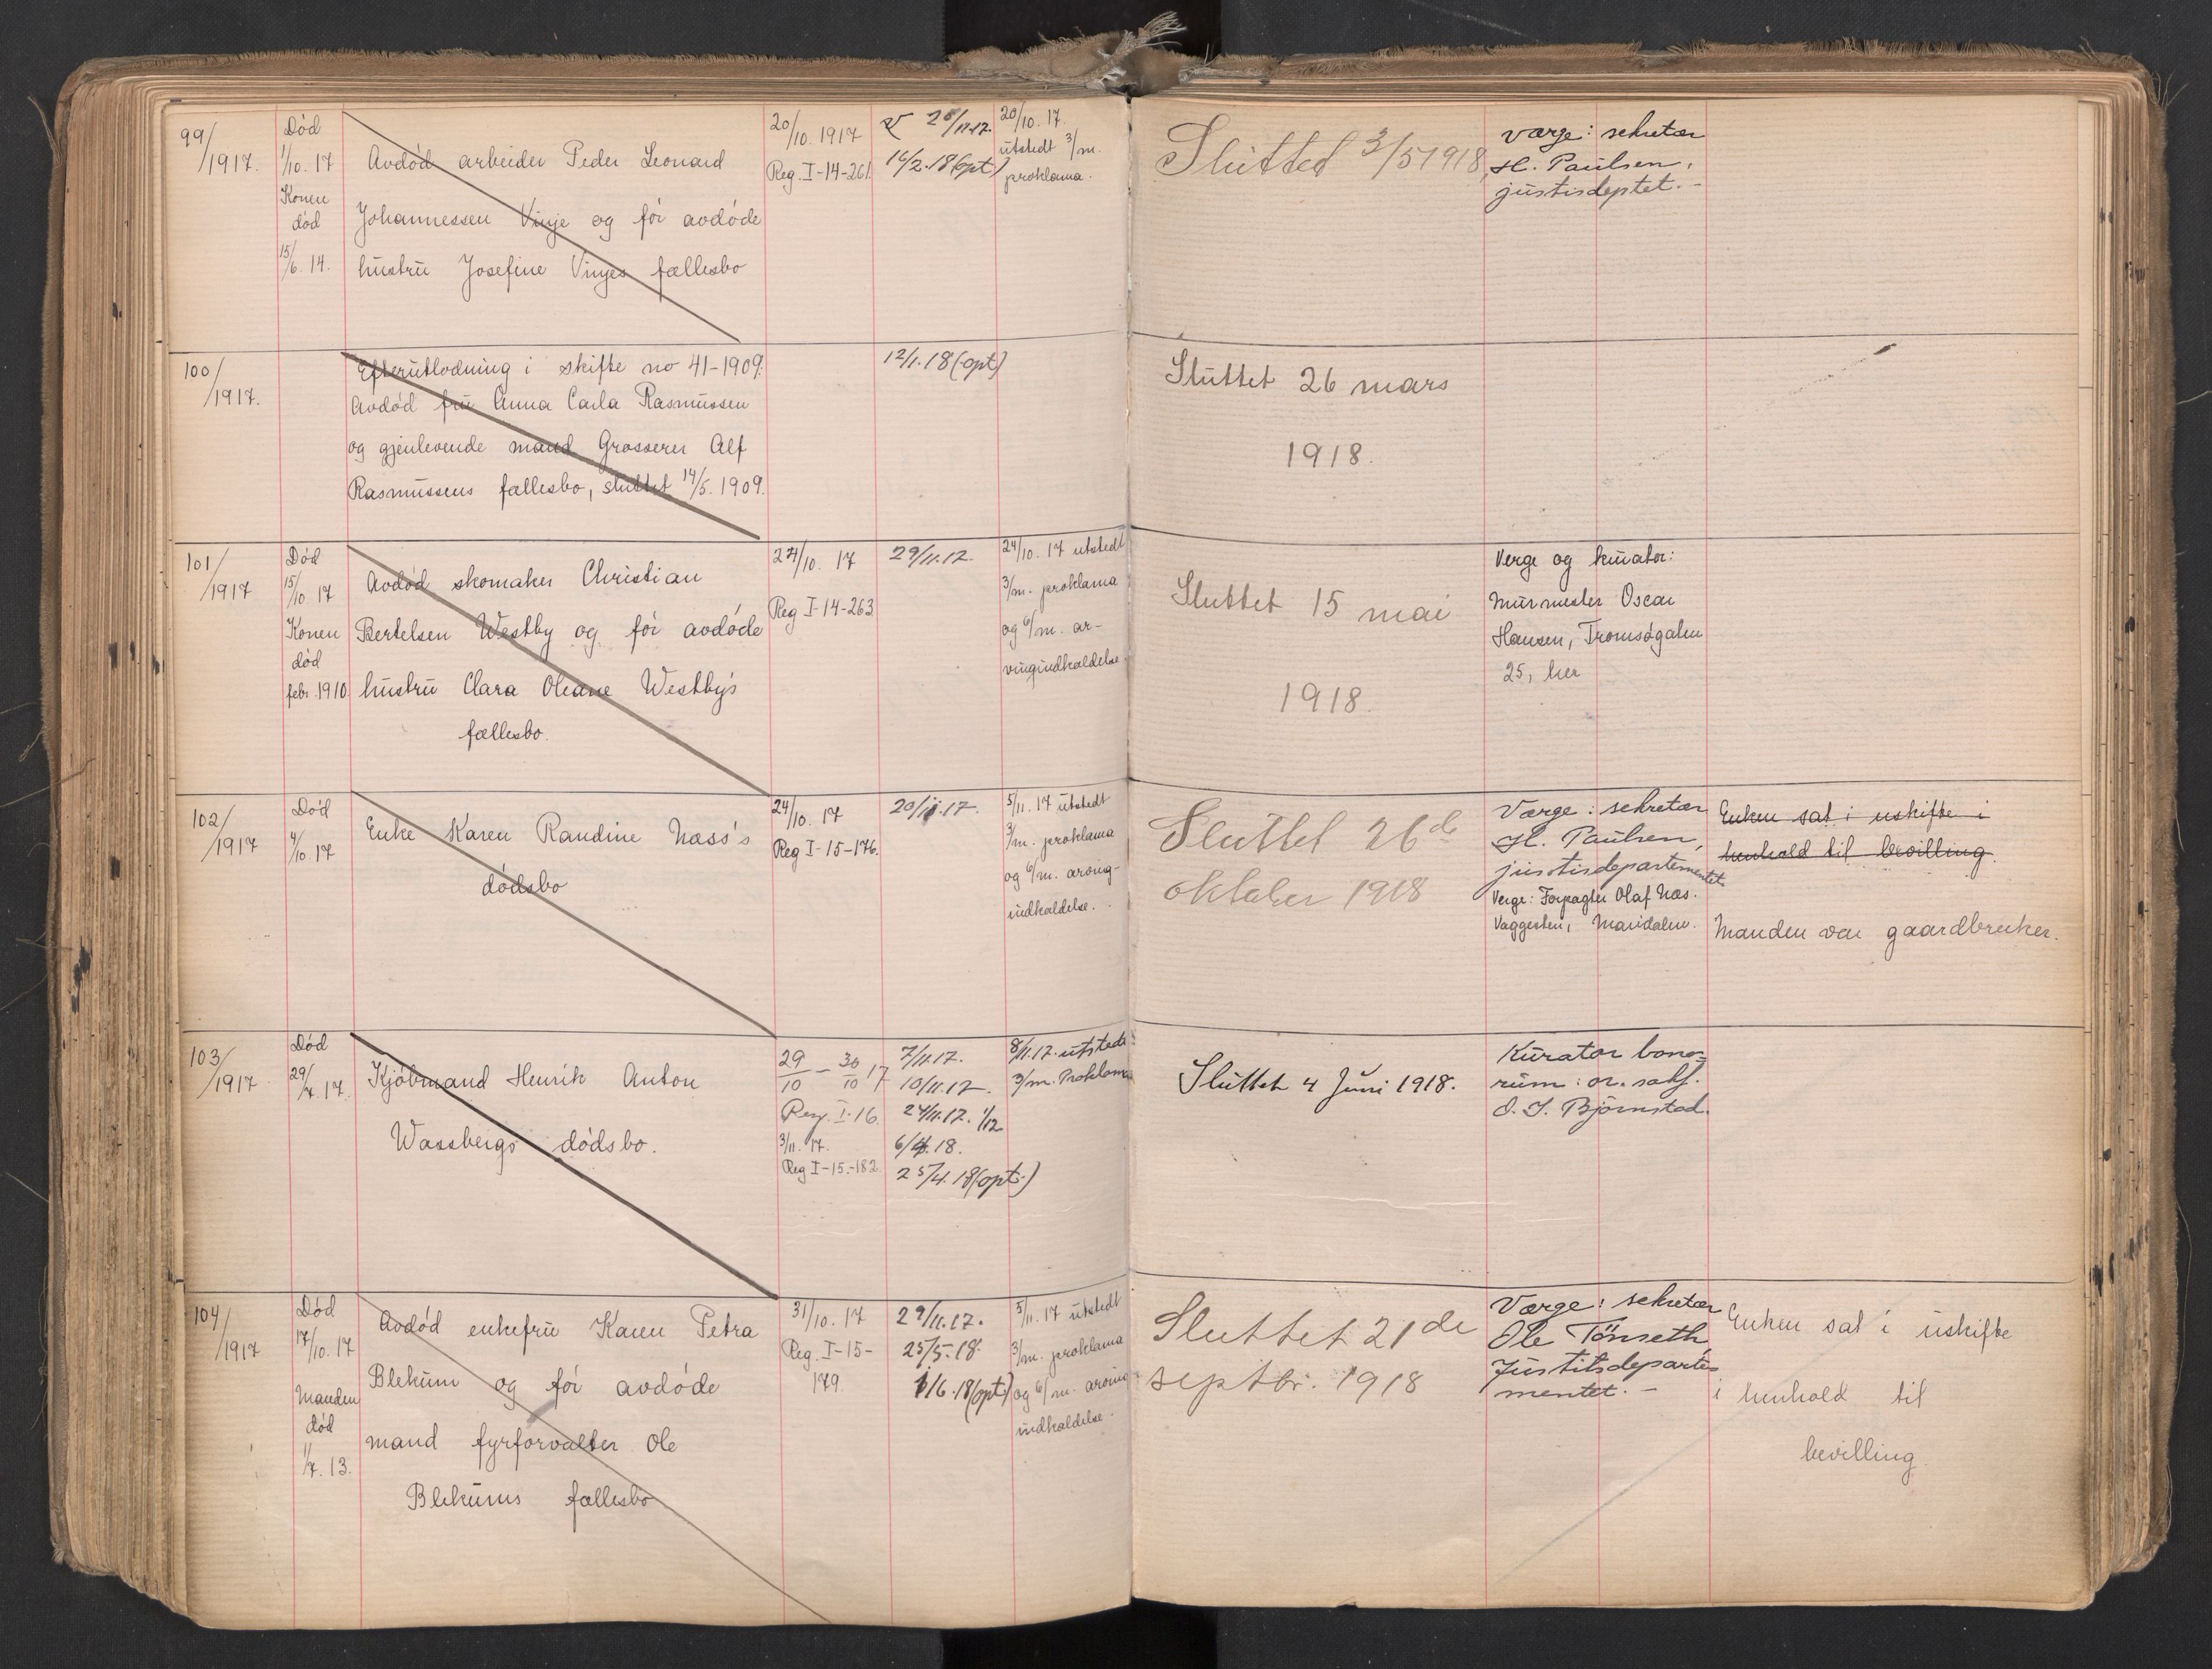 99/1917.
Død
1/10. 17
Konen
død
15/6. 14.
Avdød arbeider Peder Leonard
Johannessen Vinje og før avdøde
hustru Josefine Vinjes fællesbo
20/10. 1917
Reg. I-14-261.
28/11.17.
16/2.18 (opt)
20/10. 17.
utstedt 3/m.
proklama.
Sluttet 3/5 1918,
Værge: sekretær
H. Paulsen,
justisdeptet. -
100/1917.
Efterutlodning i skifte no 41-1909.
Avdød fru Anna Carla Rasmussen
og gjenlevende mand Grosserer Alf
Rasmussens fællesbo, sluttet 14/5. 1909.
12/1. 18 (opt)
Sluttet 26 mars
1918.
101/1917
Død
15/10. 17
Konen
død
febr. 1910
Avdød skomaker Christian
Bertelsen Westby og før avdøde
hustru Clara Oleane Westby's
fællesbo.
24/10. 17
Reg I-14-263
29/11.17.
24/10. 17 utstedt
3/m. proklama
og 6/m. ar-
vingindkaldelse.
Sluttet 15 mai
1918.
Verge og kurator:
Murmester Oscar
Hansen, Tromsøgaten
25, her
102/1917
Død
4/10. 17
Enke Karen Randine Næss's
dødsbo
24/10. 17
Reg I-15-176.
20/11.17.
5/11. 17 utstedt
3/m. proklama
og 6/m. arving-
indkaldelse.
Sluttet 26de
oktober 1918
Værge: sekretær
H. Paulsen,
justisdepartementet
Verge: Forpagter Olaf Næs.
Vaggesten, Maridalen.
Enken sat i uskifte i
henhold til bevilling.
Manden var gaardbruker.
103/1917
Død
29/7. 17.
Kjøbmand Henrik Anton
Wassbergs dødsbo.
29/10 - 30/10 17
Reg. I-16.
3/11. 17.
Reg I-15-182.
7/11.17.
10/11.17.
24/11.17. 1/12
6/4.18.
25/4.18 (opt.)
8/11.17. utstedt
3/m. Proklama
Sluttet 4 Juni 1918.
Kurator bono-
rum: or. sakf.
O. J. Bjørnstad.
104/1917
Død
17/10. 17
Manden
død
1/7. 13.
Avdød enkefru Karen Petra
Blekum og før avdøde
mand fyrforvalter Ole
Blekums fællesbo
31/10. 17
Reg. I-15-
179.
29/11.17.
25/5.18.
1/6.18 (opt.)
5/11. 17 utstedt
3/m. proklama
og 6/m. arving-
indkaldelse.
Sluttet 21de
septbr. 1918
Værge: sekretær
Ole Tönseth,
Justitsdeparte-
mentet. -
Enken sat i uskifte
i henhold til
bevilling.